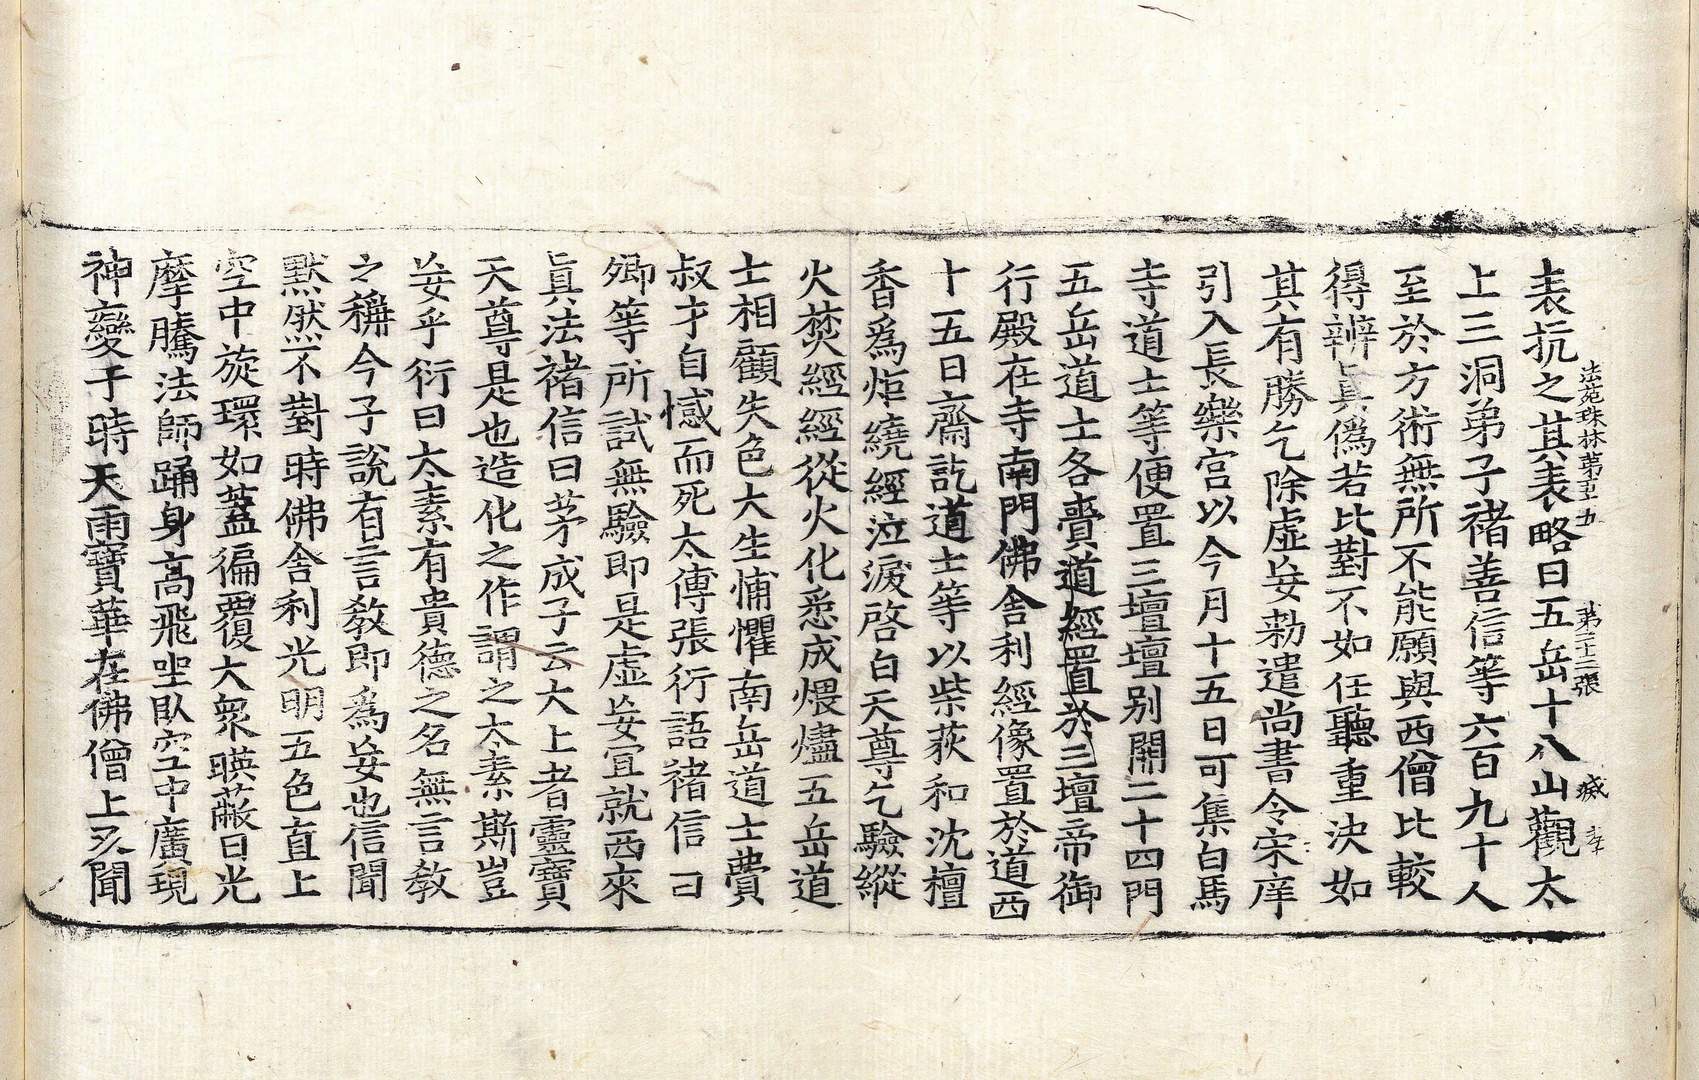 法苑珠林第五十五 第三十二張
表抗之其表略曰五岳十八山觀太
上三洞弟子褚善信等六百九十人
至於方術無所不能願與西僧比較
得辨眞僞若比對不如任聽重決如
其有勝乞除虛妄勑遣尚書令宋庠
引入長樂宮以今月十五日可集白馬
寺道士等便置三壇壇別開二十四門
五岳道士各賷道經置於三壇帝御
行殿在寺南門佛舍利經像置於道西
十五日齋訖道士等以柴荻和沈檀
香爲炬繞經泣淚啓白天尊乞驗縱
火焚經經從火化悉成煨燼五岳道
士相顧失色大生怖懼南岳道士費
叔才自憾而死太傅張衍語褚信曰
卿等所試無驗即是虛妄宜就西來
眞法褚信曰茅成子云大上者靈寶
天尊是也造化之作謂之太素斯豈
妄乎衍曰太素有貴德之名無言教
之稱今子說有言教即爲妄也信聞
默然不對時佛舍利光明五色直上
空中旋環如蓋徧覆大衆暎蔽日光
摩騰法師踊身高飛坐臥空中廣現
神變于時天雨寶華在佛僧上又聞